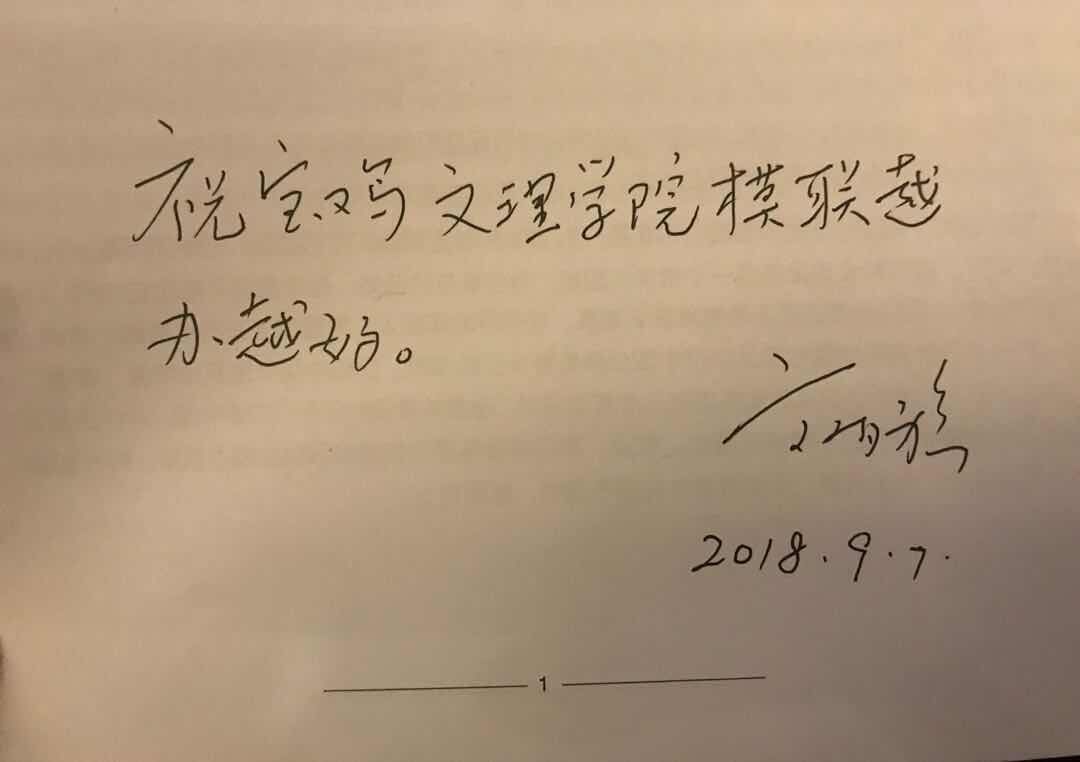 祝宝鸡文理学院模联越
办越好。
2018.9.7.
1